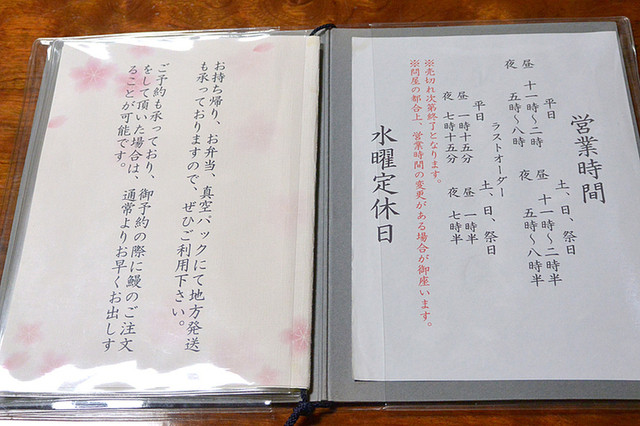 営業時間
平日 土、日、祭日
昼 十一時～二時 昼 十一時～二時半
夜 五時～八時 夜 五時～八時半
ラストオーダー
平日 土、日、祭日
昼 一時十五分 昼 一時半
夜 七時十五分 夜 七時半
※売切れ次第終了となります。
※問屋の都合上、営業時間の変更がある場合が御座います。
水曜定休日
お持ち帰り、お弁当、真空パックにて地方発送
も承っておりますので、ぜひご利用下さい。
ご予約も承っており、御予約の際に鰻のご注文
をして頂いた場合は、通常よりお早くお出しす
ることが可能です。